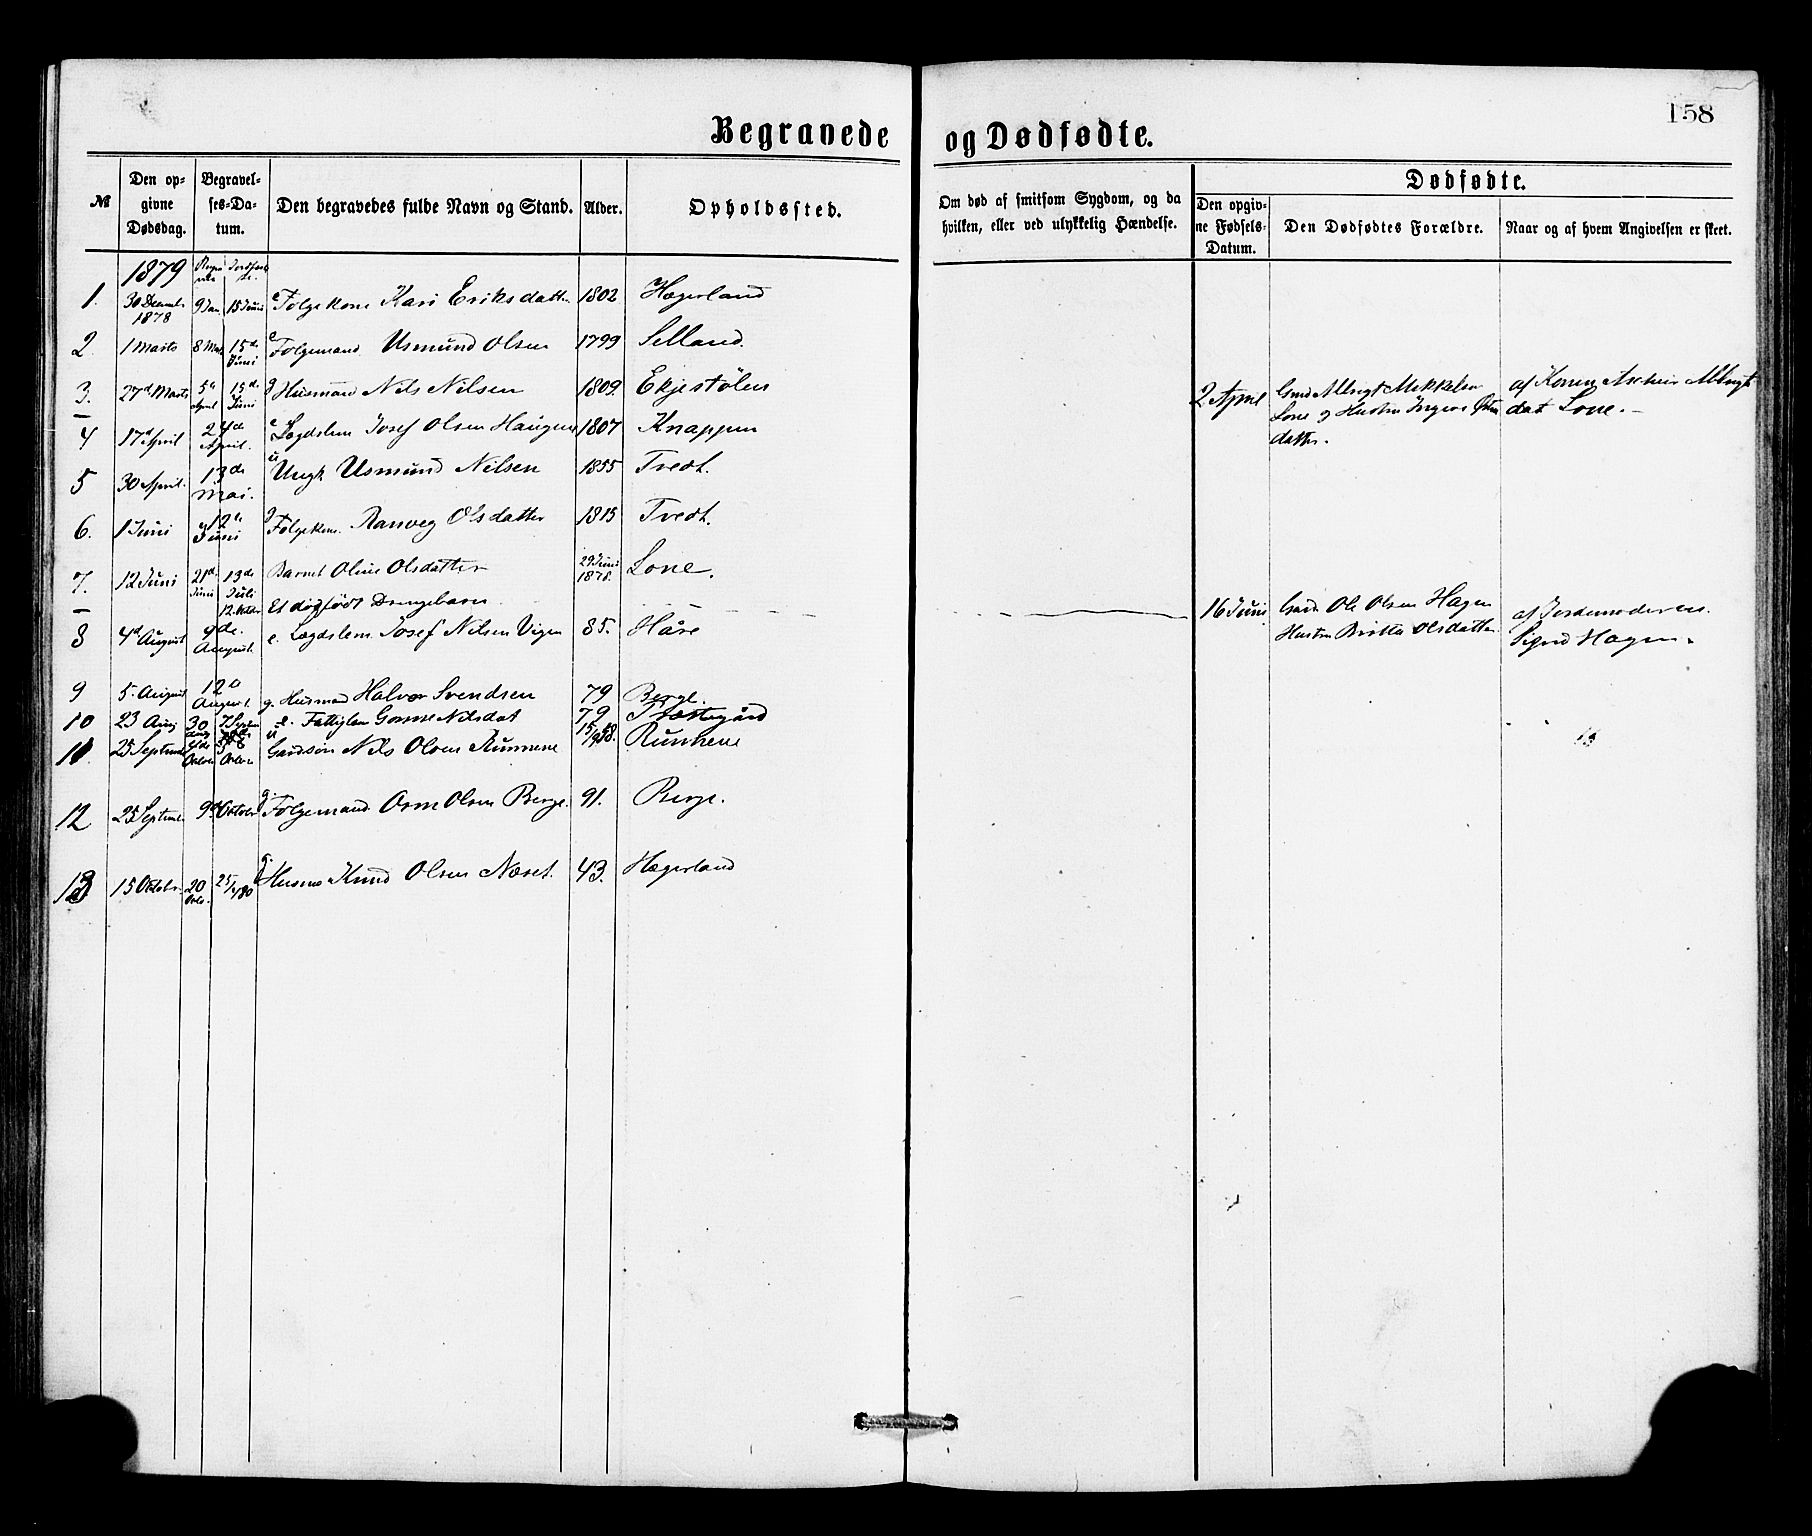 158
Begravede og Dødfødte.
№
Den op-
givne
Dødsdag.
Begravel-
ses-Da-
tum.
Den begravedes fulde Navn og Stand.
Alder.
Opholdssted.
Om død af smitsom Sygdom, og da
hvilken, eller ved ulykkelig Hændelse.
Dødfødte.
Den opgiv-
ne Fødsels-
Datum.
Den Dødfødtes Forældre.
Naar og af hvem Angivelsen er skeet.
1879
1. 30 Decemb. 1878 9 Jan. 15 Juni e Folgekone Kari Eriksdatter 1802 Hægerland
2. 1 Marts 8 Mai 15de Juni e Folgemand Usmund Olsen 1799 Selland
3. 27d Marts 5te April 15de Juni g Husmand Nils Nilsen 1809. Ekjestølen
– 2 April Lone og Hustru datter. af Lone. –
4 17d April 24d April e Lægdslem Josef Olsen Haugen 1807 Knappen
5 30 April. 13de Mai. u Ungk Usmund Nilsen 1855 Tvedt.
6. 1 Juni 12te Juni g Folgekone. Ranveg Olsdatter 1815 Tvedt.
7. 12 Juni 21de Juni 13de Juli Barnet Oline Olsdatter 29 Juni 1878. Lone.
– Et dødfødt Drengebarn. 16 Juni Gard. Ole Olsen Hagen Hustru Britta Olsdatter af Jordemoderen Sigrid Hagen.
8 4d August 9de. August. e. Lægdslem. Josef Nilsen Vigen 85. Håre
9 5. August 12te August. g. Husmand Halvor Svendsen 79 Berge.
10 23 Aug 30 Aug e. Fattiglem Gunne Nilsdat 79 Præstegård
11. 25 Septemb u Gardsøn Nils Olsen Runnene 15/9 58. Runnene
12 25 Septemb. 9d Oktober g. Folgemand Orm Olsen Berge. 91. Berge.
13 15 Oktober. 20 Octo. 25/4 80 g. Husma Knud Olsen Næset. 43. Hægerland